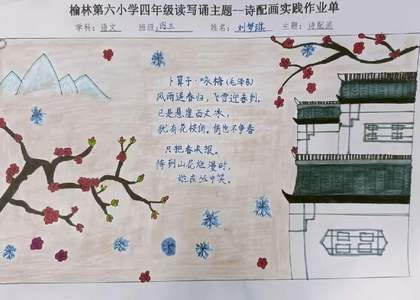 榆林第六小学四年级读写诵主题--诗配画实践作业单
学科：语文 班级：四三 姓名：刘梦琪 主题：诗配画
卜算子·咏梅（毛泽东）
风雨送春归，飞雪迎春到。
已是悬崖百丈冰，
犹有花枝俏。俏也不争春
只把春来报。
待到山花烂漫时，
她在丛中笑。